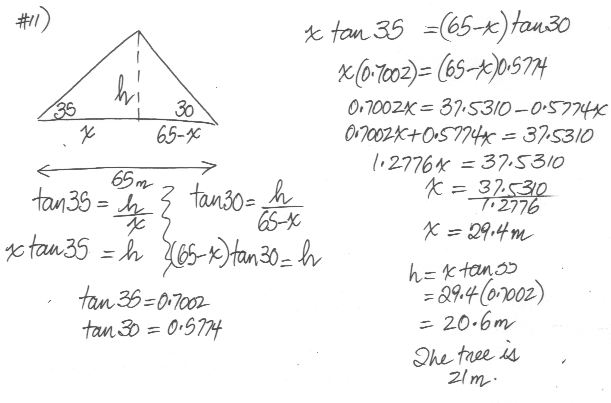 #11)
h
35
30
x
65-x
65m
tan35 = h/x
tan30 = h/65-x
x tan35 = h
(65-x)tan30 = h
tan35 = 0.7002
tan30 = 0.5774
x tan 35 = (65-x)tan30
x(0.7002) = (65-x)0.5774
0.7002x = 37.5310 - 0.5774x
0.7002x + 0.5774x = 37.5310
1.2776x = 37.5310
x = 37.5310/1.2776
x = 29.4m
h = x tan35
= 29.4(0.7002)
= 20.6m
The tree is
21m.